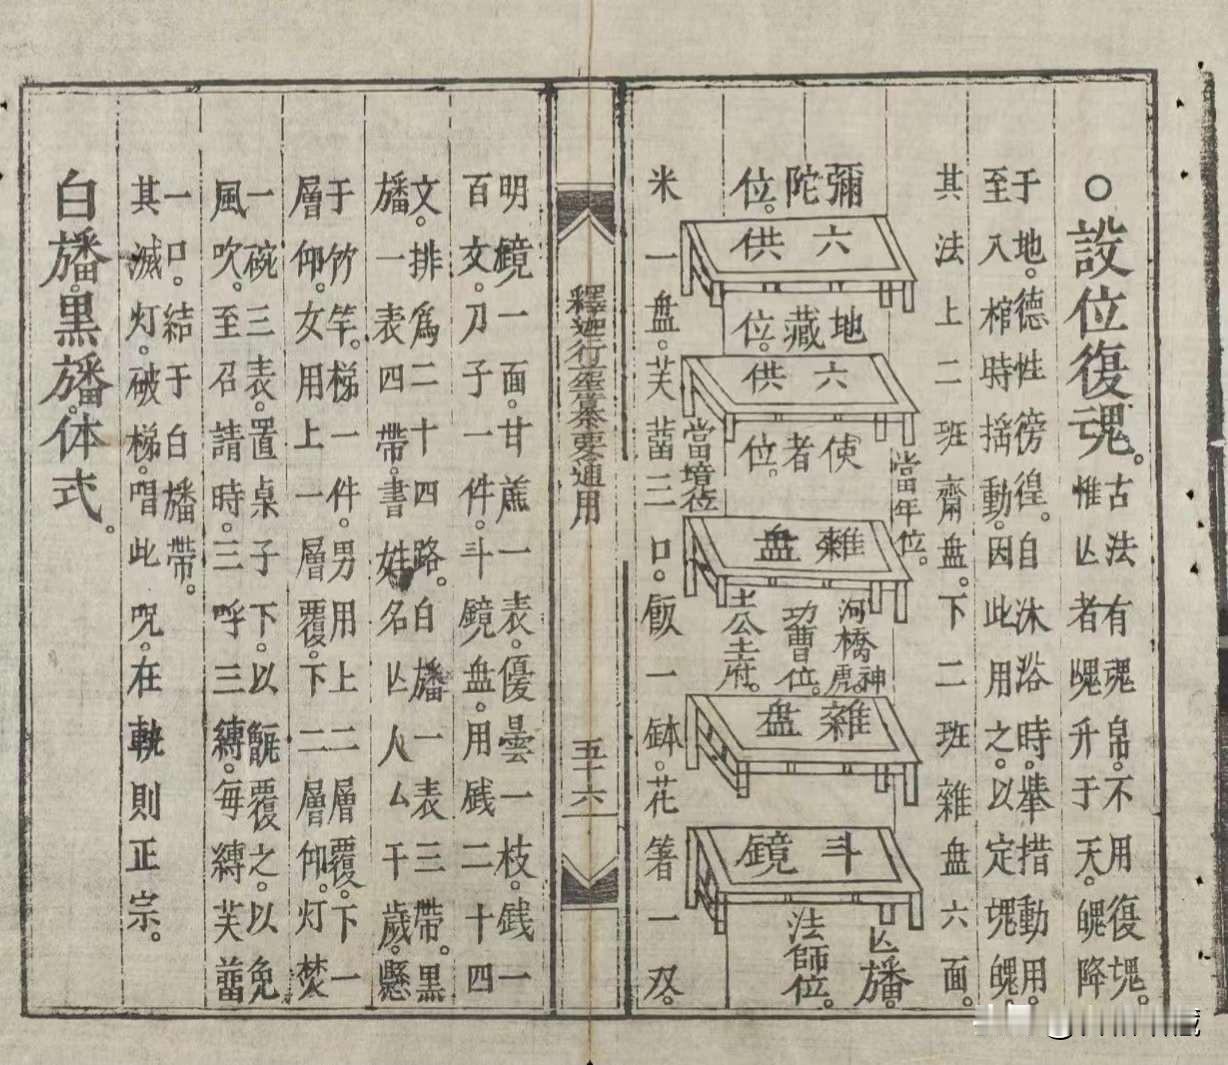 ○設位復魂。
古法有魂帛。不用復魂。
惟亾者䰟升于天。魄降
于地。德性徬徨。自沐浴時。舉措動用。
至入棺時。搖動。因此用之。以定魂魄。
其法上二班齋盘。下二班雜盘六面。
彌陀位。
六供
地藏位。
六供
當年位。
使者位。
當境位
雜盘
河橋神虎。
功曹位。
土公土府。
雜盘
斗鏡
亾旛。
法師位。
米一盘。芙蕾三口。飯一鉢。花箸一双。
釋迦行纂要通用
五十六
明鏡一面。甘蔗一表。優曇一枝。銭一
百文。刀子一件。斗鏡盘。用銭二十四
文。排爲二十四路。白旛一表三帶。黒
旛一表四帶。書姓名亾人厶干歲。懸
于竹竿。梯一件。男用上二層覆。下一
層仰。女用上一層覆。下二層仰。灯焚
一碗三表。置桌子下。以甑覆之。以免
風吹。至召請時。三呼三縛。每縛芙蕾
一口。結于白旛帶。
其滅灯。破梯。唱此咒。在軌則正宗。
白旛黒旛体式。